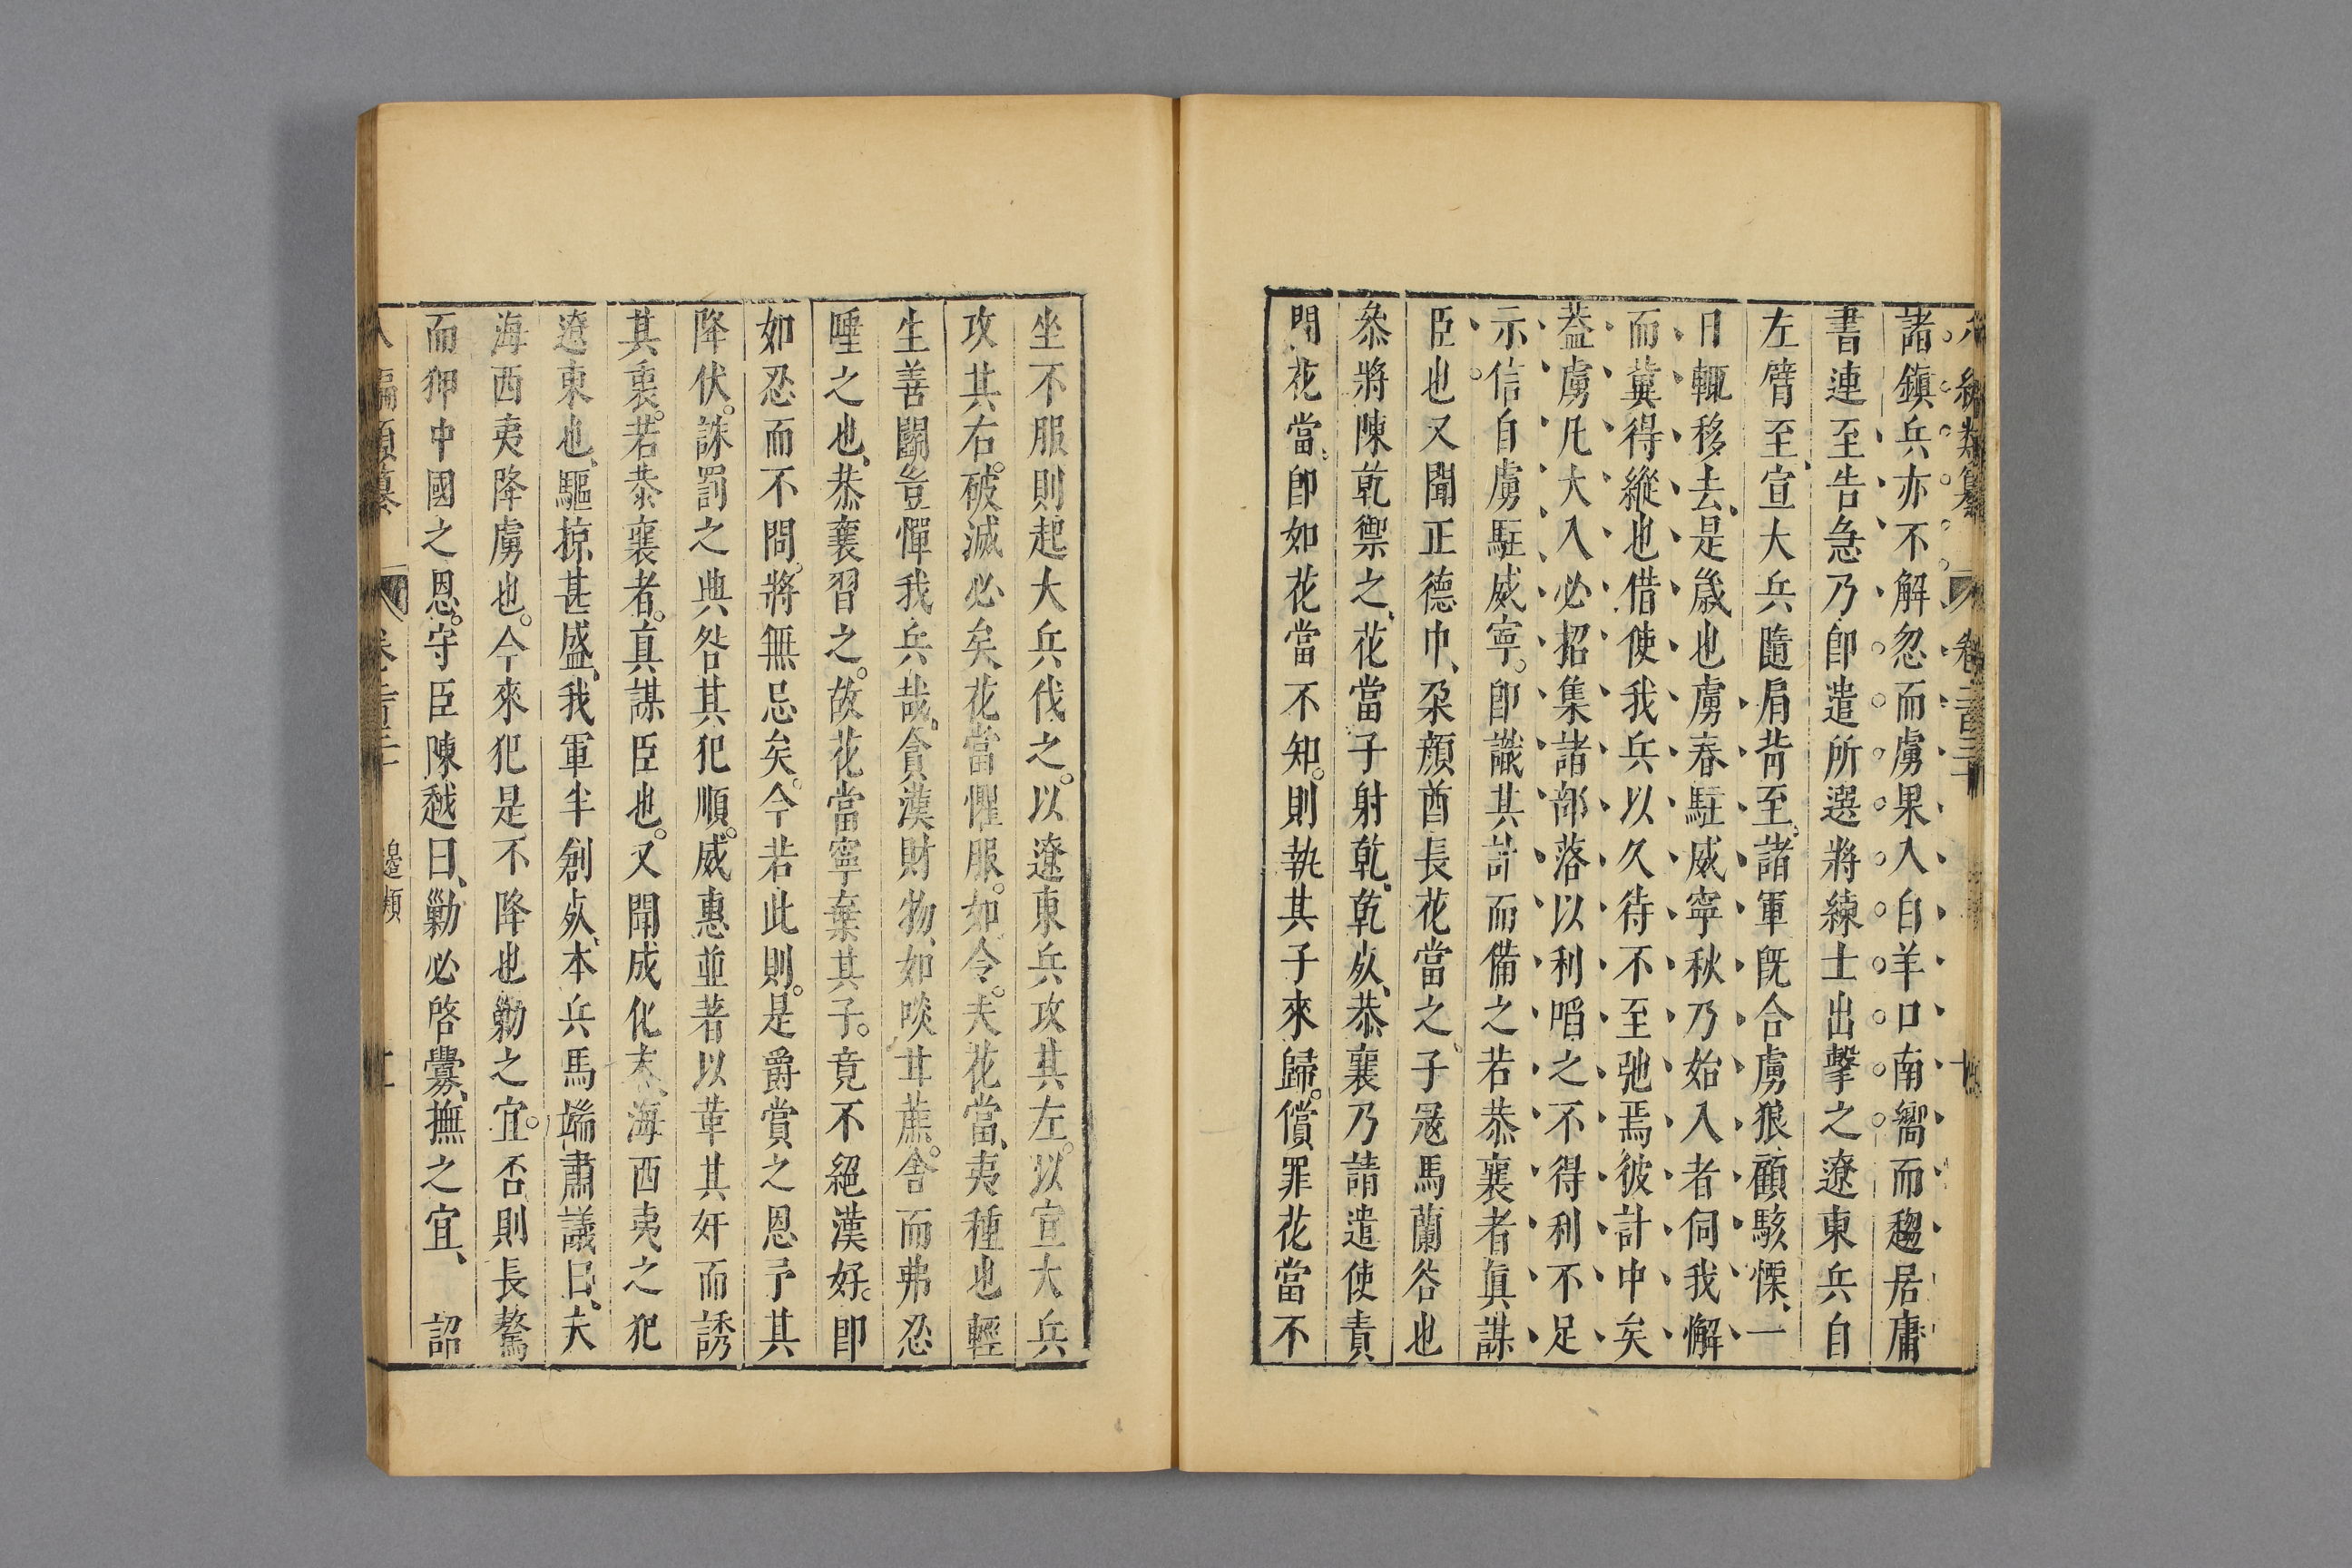 八編類纂 卷二百三十 十
諸鎮兵亦不解忽而虜果入白羊口南嚮而趨居庸
書連至告急乃卽遣所選將練士出擊之遼東兵自
左臂至宣大兵隨肩背至諸軍既合虜狼顧駭慄一
日輒移去是歲也虜春駐威寧秋乃始入者伺我懈
而冀得縱也借使我兵以久待不至弛焉彼計中矣
葢虜凡大入必招集諸部落以利啗之不得利不足
示信自虜駐威寧卽識其計而備之若恭襄者眞謀
臣也又聞正德巾朶顔酋長花當之子冦馬蘭谷也
叅將陳乾禦之花當子射乾乾歿恭襄乃請遣使責
問花當卽如花當不知則執其子來歸償罪花當不
坐不服則起大兵伐之以遼東兵攻其左以宣大兵
攻其右破滅必矣花當懼服如令夫花當夷種也輕
生善鬭豈憚我兵哉貪漢財物如啖甘蔗舍而弗忍
唾之也恭襄習之故花當寧棄其子竟不絕漢好卽
如忍而不問將無忌矣今若此則是爵賞之恩予其
降伏誅罰之典咎其犯順威惠並著以革其奸而誘
其衷若恭襄者真謀臣也又聞成化末海西夷之犯
遼東也驅掠甚盛我軍半創歿本兵馬端肅議曰夫
海西夷降虜也今來犯是不降也勦之宜否則長驁
而狎中國之恩守臣陳越曰勦必啓釁撫之宜 詔
八編類纂 卷二百三十 邊類 十一